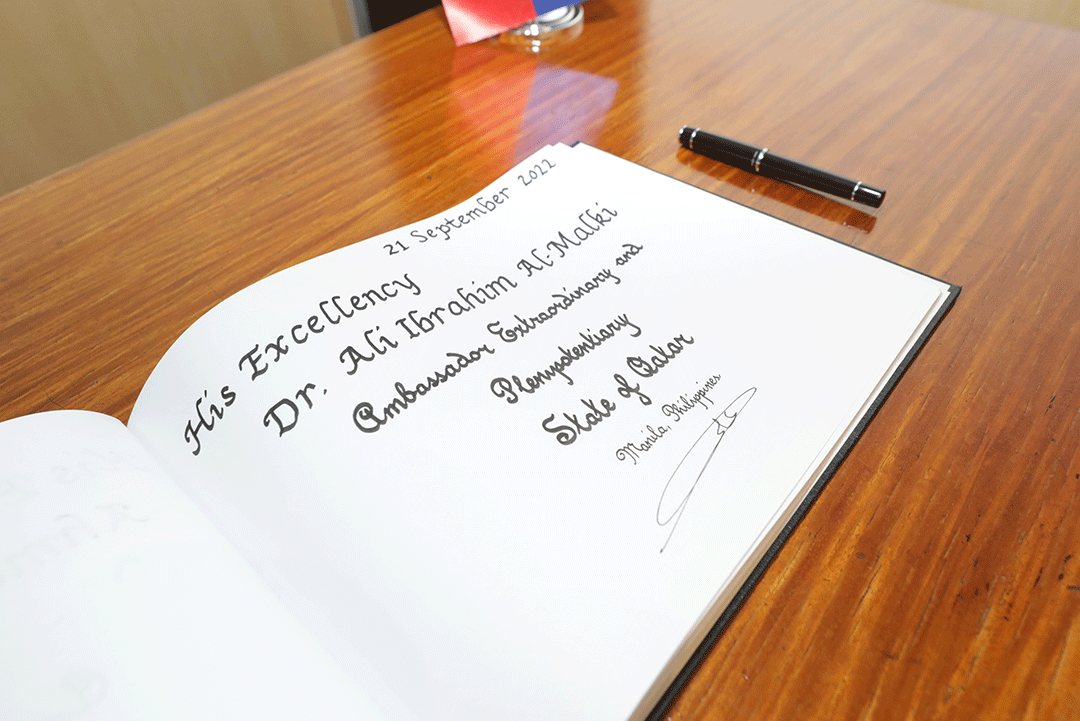 21 September 2022
His Excellency
Dr. Ali Ibrahim Al-Malki
Ambassador Extraordinary and
Plenypotentiary
State of Qatar
Manila, Philippines